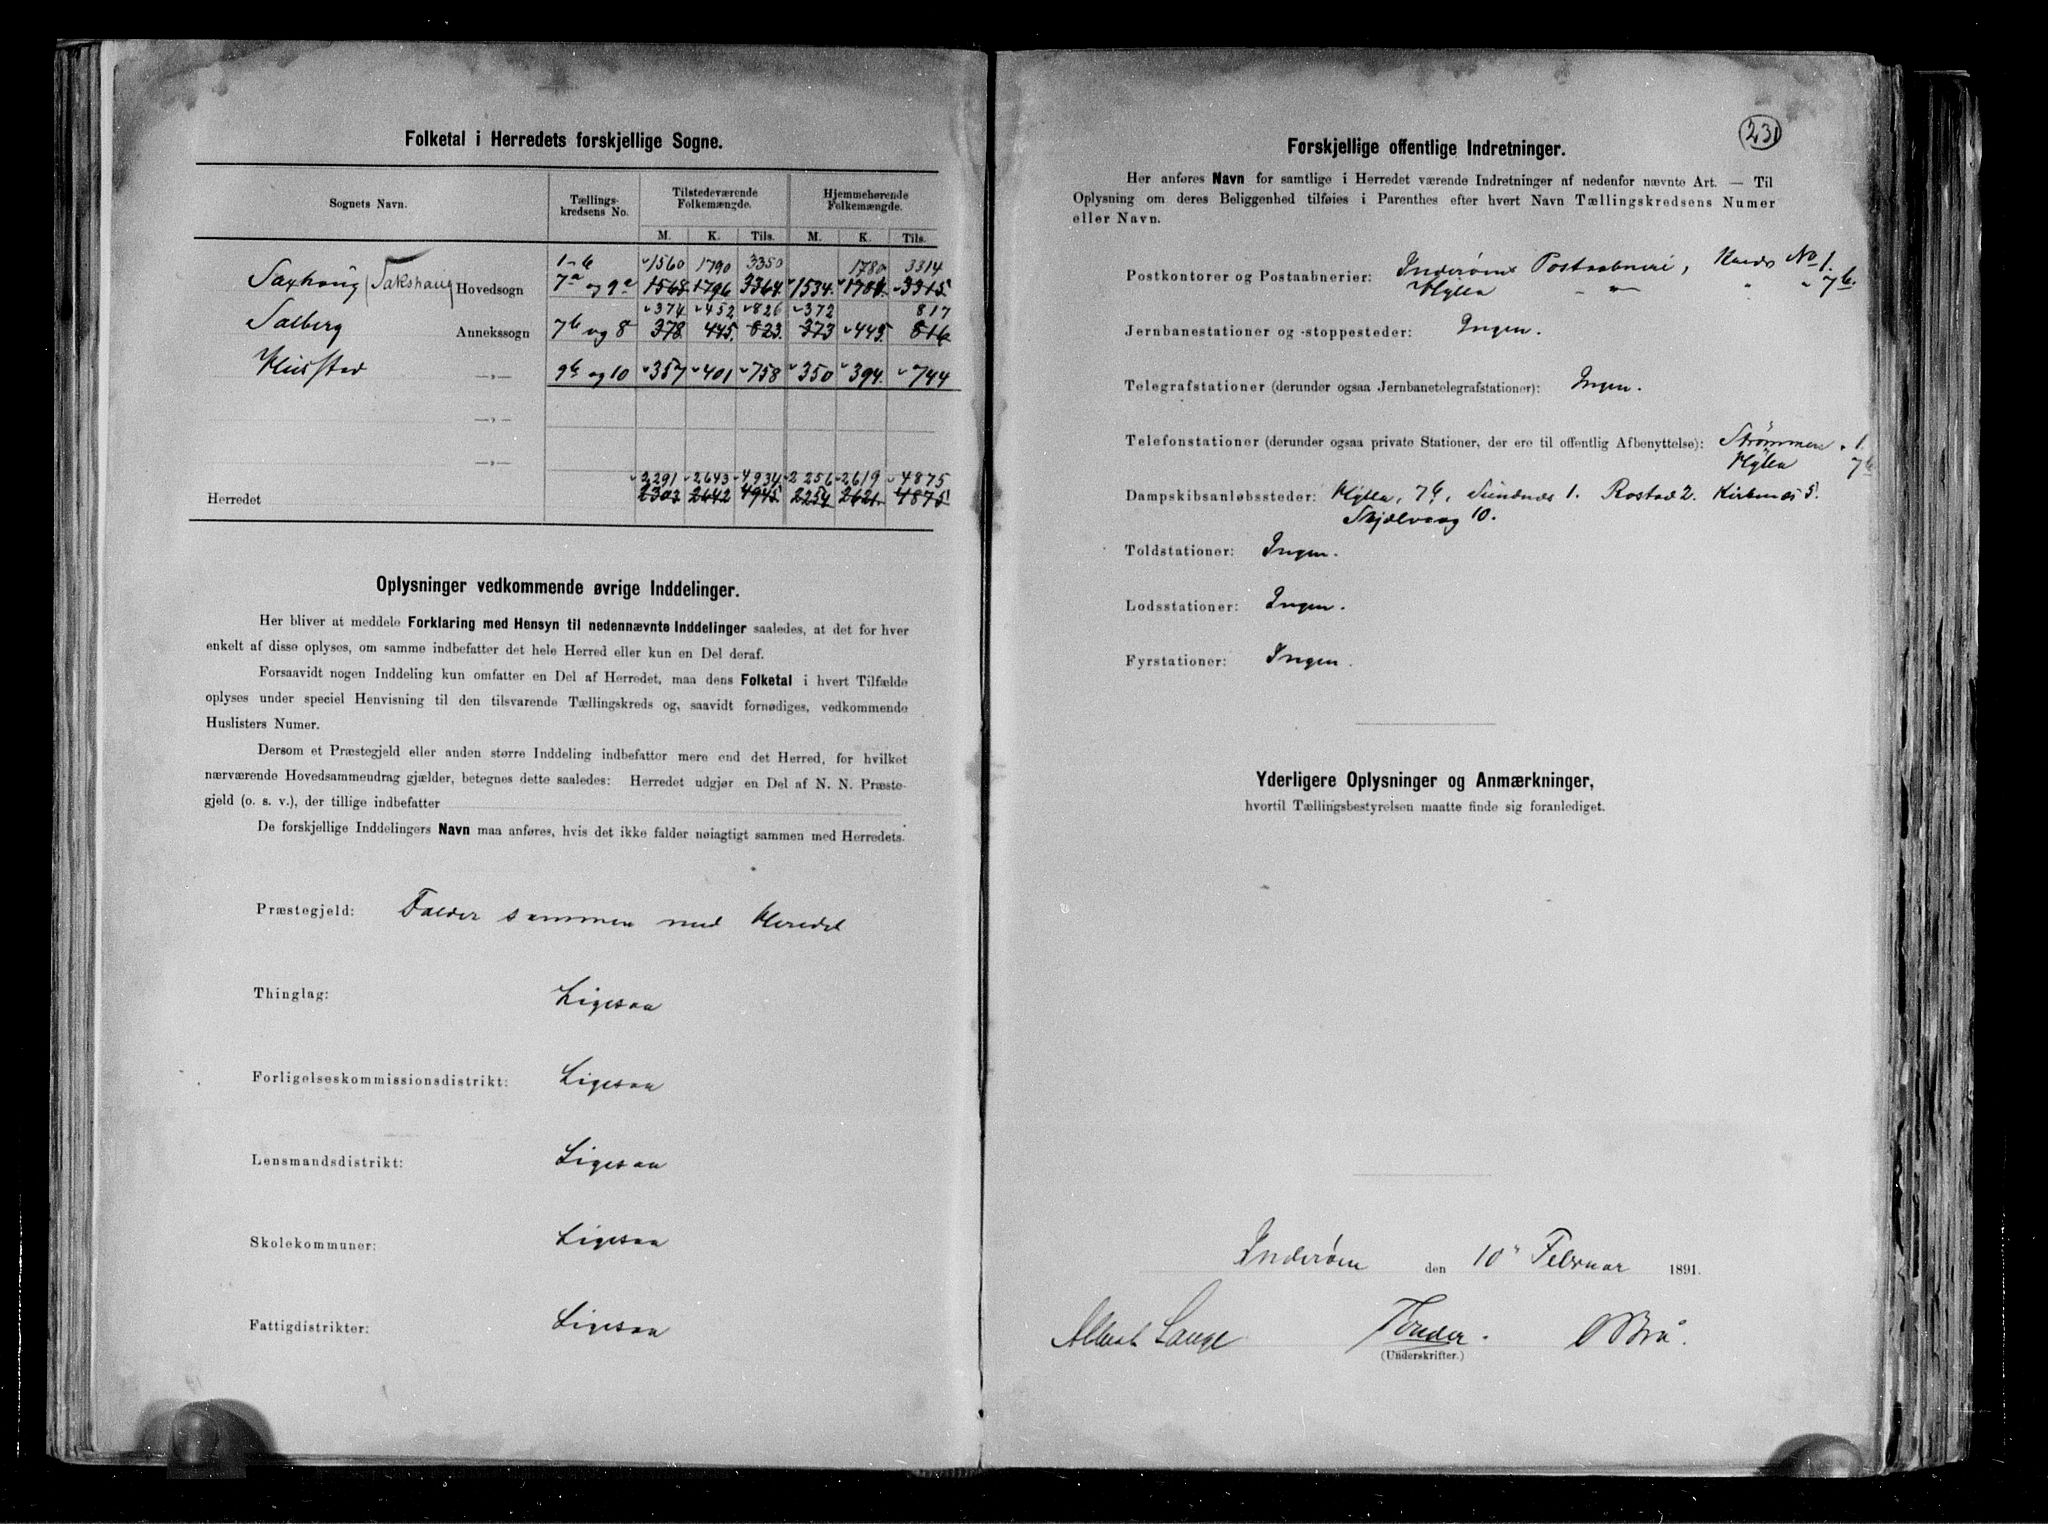 Folketal i Herredets forskjellige Sogne.
Sognets Navn. Tællings-kredsens No. Tilstedeværende Folkemængde. Hjemmehørende Folkemængde.
M. K. Tils. M. K. Tils.
1-6 1560 1790 3350 1780 3314
Saxhaug (Sakshaug) Hovedsogn 7a og 9a 1568 1796 3364 1534 1781 3315
374 452 826 372 817
Salberg Annekssogn 7b og 8 378 445 823 373 445 816
Hustad —„— 9b og 10 357 401 758 350 394 744
—„—
—„—
2291 2643 4934 2256 2619 4875
Herredet 2303 2642 4945 2254 2621 4875
Oplysninger vedkommende øvrige Inddelinger.
Her bliver at meddele Forklaring med Hensyn til nedennævnte Inddelinger saaledes, at det for hver
enkelt af disse oplyses, om samme indbefatter det hele Herred eller kun en Del deraf.
Forsaavidt nogen Inddeling kun omfatter en Del af Herredet, maa dens Folketal i hvert Tilfælde
oplyses under speciel Henvisning til den tilsvarende Tællingskreds og, saavidt fornødiges, vedkommende
Huslisters Numer.
Dersom et Præstegjeld eller anden større Inddeling indbefatter mere end det Herred, for hvilket
nærværende Hovedsammendrag gjælder, betegnes dette saaledes: Herredet udgjør en Del af N. N. Præste-
gjeld (o. s. v.), der tillige indbefatter
De forskjellige Inddelingers Navn maa anføres, hvis det ikke falder nøiagtigt sammen med Herredets.
Præstegjeld: Falder sammen med Heredet
Thinglag: Ligesaa
Forligelseskommissionsdistrikt: Ligesaa
Lensmandsdistrikt: Ligesaa
Skolekommuner: Ligesaa
Fattigdistrikter: Ligesaa
231
Forskjellige offentlige Indretninger.
Her anføres Navn for samtlige i Herredet værende Indretninger af nedenfor nævnte Art. — Til
Oplysning om deres Beliggenhed tilføies i Parenthes efter hvert Navn Tællingskredsens Numer
eller Navn.
Postkontorer og Postaabnerier: Inderøens Postaabneri, Kreds No 1.
Hylla „ „ „ „ 7b.
Jernbanestationer og -stoppesteder: Ingen.
Telegrafstationer (derunder ogsaa Jernbanetelegrafstationer): Ingen.
Telefonstationer (derunder ogsaa private Stationer, der ere til offentlig Afbenyttelse): Strømmen 1.
Hylla 7b
Dampskibsanløbssteder: Hylla, 7b, Sundnæs 1. Rostad 2. Kirknæs 5.
Skjelvaag 10.
Toldstationer: Ingen.
Lodsstationer: Ingen.
Fyrstationer: Ingen.
Yderligere Oplysninger og Anmærkninger,
hvortil Tællingsbestyrelsen maatte finde sig foranlediget.
Inderøen den 10de Februar 1891.
Albert Lange Tønder. O Brå.
(Underskrifter.)